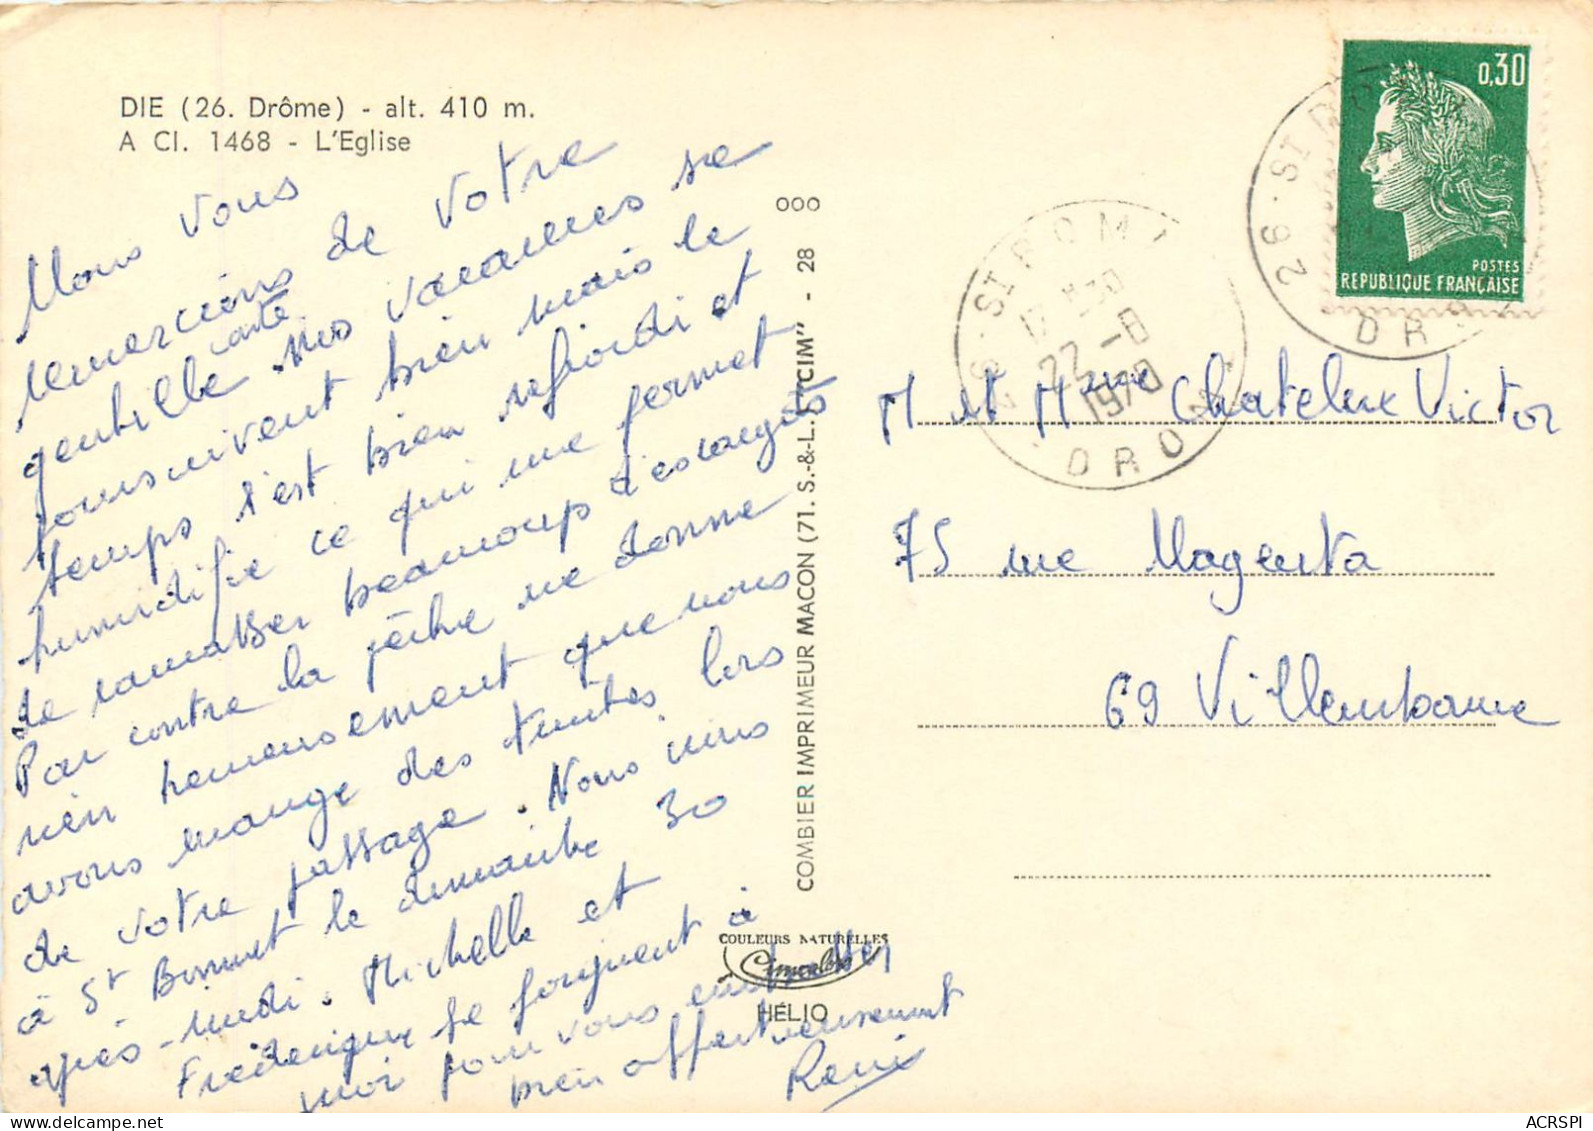 DIE (26. Drôme) - alt. 410 m.
A Cl. 1468 - L'Eglise
Nous vous
remercions de votre
gentille carte. Nos vacances se
poursuivent bien mais le
temps s'est bien refroidi et
humidifie ce qui me permet
de ramasser beaucoup d'escargots
Par contre la pêche ne donne
rien heureusement que nous
avons mangé des truites lors
de votre passage. Nous irons
à St Bonnet le dimanche 30
après-midi. Michelle et
Frédérique se joignent à
moi pour vous embrasser
bien affectueusement
René
000
COMBIER IMPRIMEUR MACON (71. S.-&-L.) "CIM" - 28
COULEURS NATURELLES
Cimcolor
HÉLIO
26 - ST ROMA
17 H30
22 - 8
1970
DROME
26 - ST RO
DRO
0,30
POSTES
REPUBLIQUE FRANÇAISE
M et Mme Chatelux Victor
75 rue Magenta
69 Villeurbanne
ACRSPI